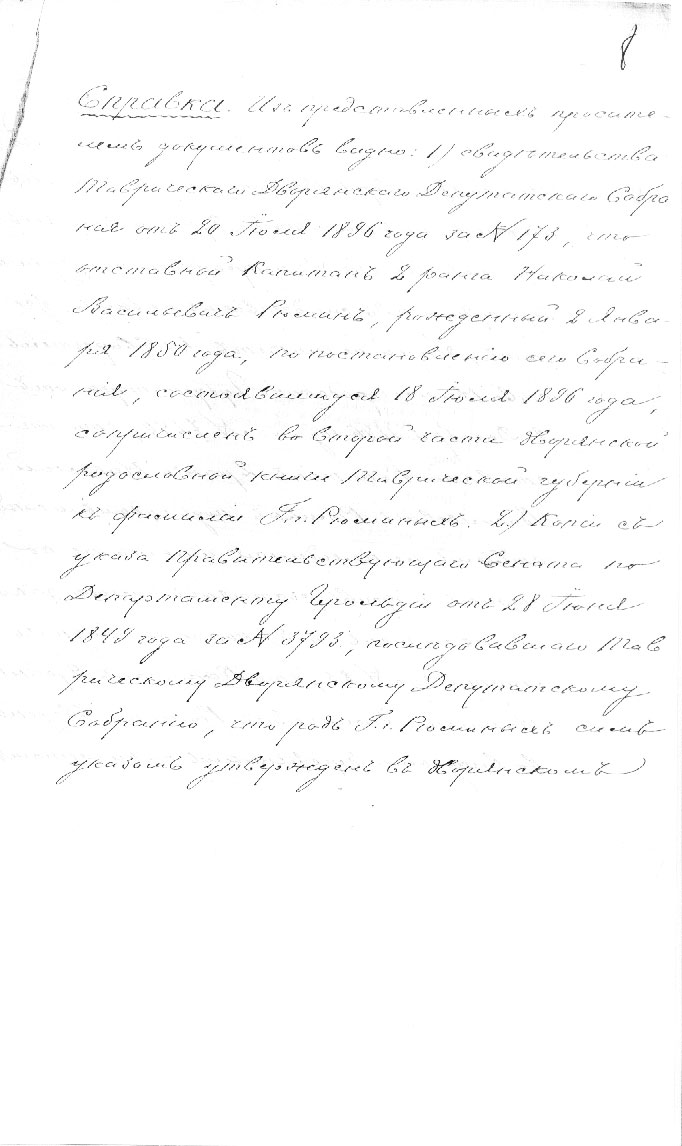 8
Справка. Изъ представленныхъ просите-
лемъ документовъ видно: 1) свидѣтельства
Таврическаго Дворянскаго Депутатскаго Собра
нія отъ 20 Іюля 1896 года за № 173, что
отставной Капитанъ 2 ранга Николай
Васильевичъ Рюминъ, рожденный 2 Янва-
ря 1850 года, по постановленію сего Собра-
нія, состоявшемуся 18 Іюля 1896 года,
сопричисленъ во второй части дворянской
родословной книги Таврической губерніи
къ фамиліи Гг. Рюминыхъ. 2) Копіи съ
указа Правительствующаго Сената по
Департаменту Герольдіи отъ 28 Іюня
1849 года за № 3793, послѣдовавшаго Тав
рическому Дворянскому Депутатскому
Собранію, что родъ Гг. Рюминыхъ симъ
указомъ утвержденъ въ дворянскомъ